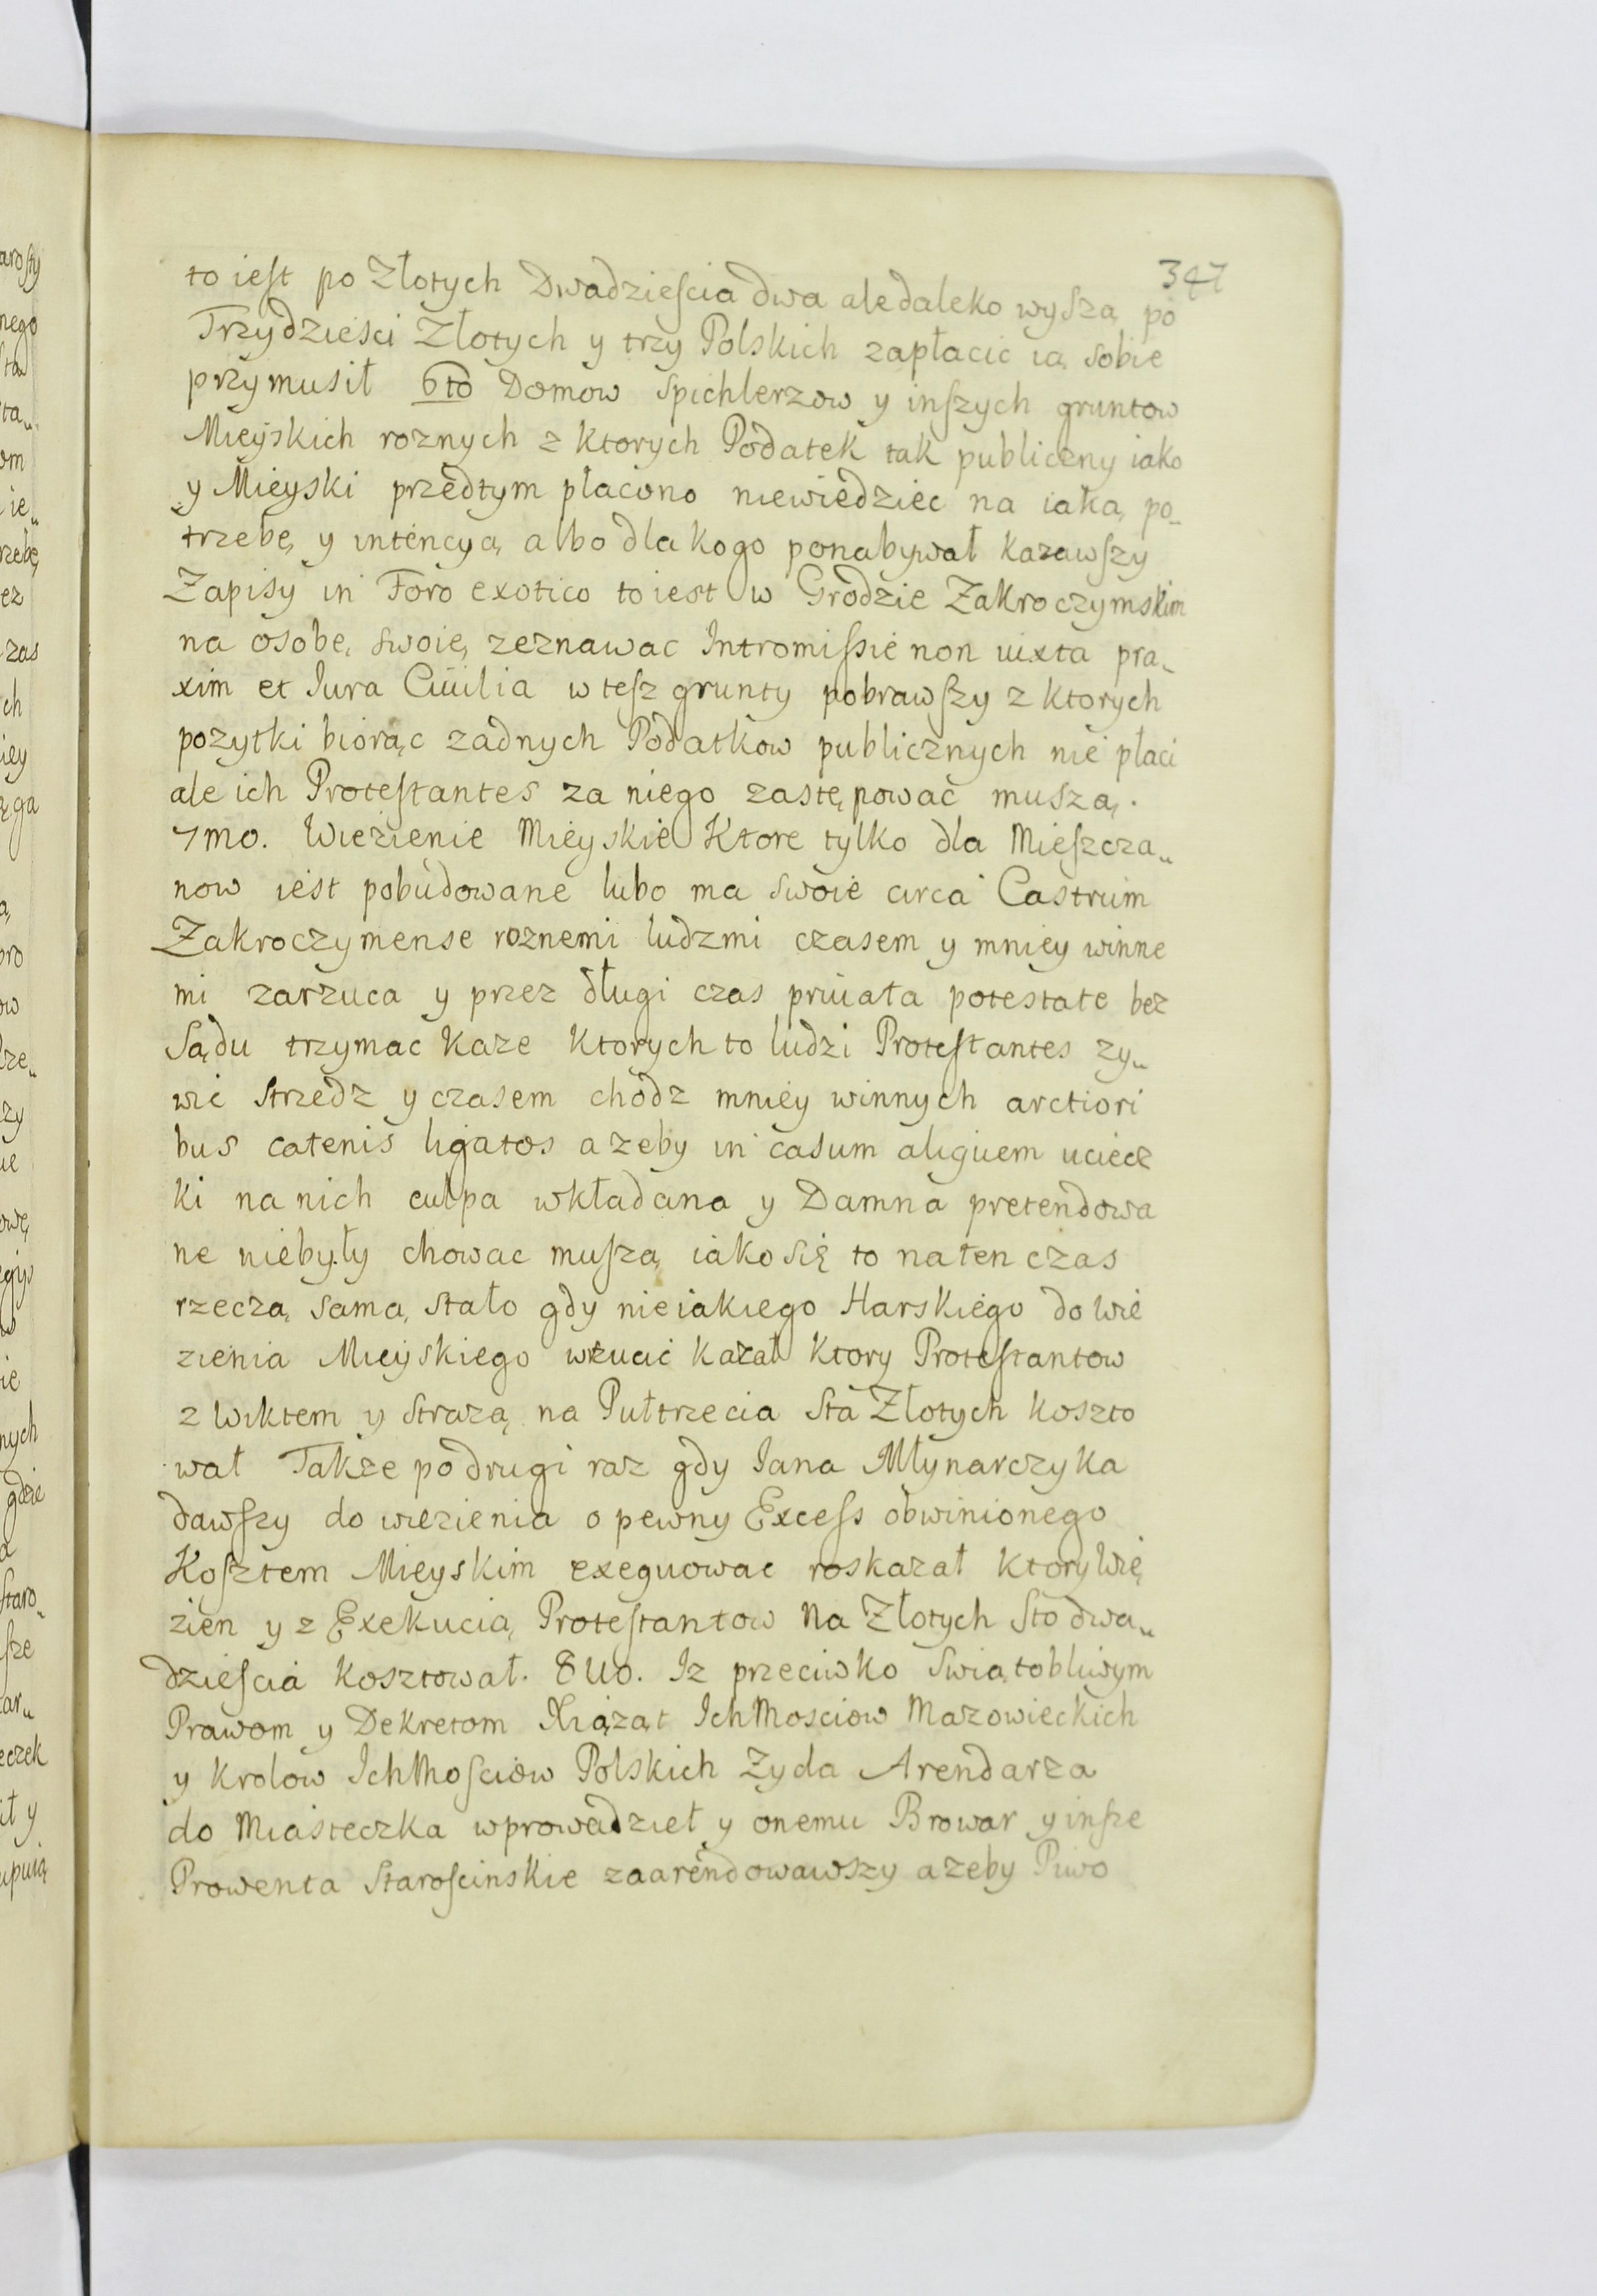 347
to iest po Złotych Dwadziescia dwa ale daleko wyszą po
Trzydziesci Złotych y trzy Polskich zapłacic ią sobie
przymusił 6to Domow Spichlerzow y inszych gruntow
Mieyskich roznych z ktorych Podatek tak publiczny iako
y Mieyski przedtym płacono niewiedziec na iaką po-
trzebę y intencyą albo dla kogo ponabywał kazawszy
Zapisy in Foro exotico to iest w Grodzie Zakroczymskim
na osobę swoię zeznawac Intromissie non iuxta pra„
xim et Iura Ciuilia w tesz grunty pobrawszy z ktorych
pozytki biorąc zadnych Podatkow publicznych nie płaci
ale ich Protestantes za niego zastępować muszą.
7mo. Wiezienie Mieyskie Ktore tylko dla Mieszcza„
now iest pobudowane lubo ma swoie circa Castrum
Zakroczymense roznemi ludzmi czasem y mniey winne
mi zarzuca y przez długi czas priuata potestate bez
Sądu trzymac kaze ktorych to ludzi Protestantes zy„
wic strzedz y czasem chodz mniey winnych arctiori
bus catenis ligatos azeby in casum aliquem uciecz
ki na nich culpa wkładana y Damna pretendowa
ne niebyły chowac muszą iako się to na ten czas
rzeczą samą stało gdy nieiakiego Harskiego do Wie
zienia Mieyskiego wrzucic kazał ktory Protestantow
z Wiktem y strazą na Pułtrzecia sta Złotych koszto
wał Takze po drugi raz gdy Iana Młynarczyka
dawszy do wiezienia o pewny Excess obwinionego
Kosztem Mieyskim exequowac roskazał ktory Wię
zien y z Exekucią Protestantow na Złotych Sto dwa„
dziescia kosztował. 8uo. Iz przeciwko Swiątobliwym
Prawom y Dekretom Xiąząt Ich Mosciow Mazowieckich
y Krolow Ich Mosciow Polskich Zyda Arendarza
do Miasteczka wprowadzieł y onemu Browar y insze
Prowenta Staroscinskie zaarendowawszy azeby Piwo